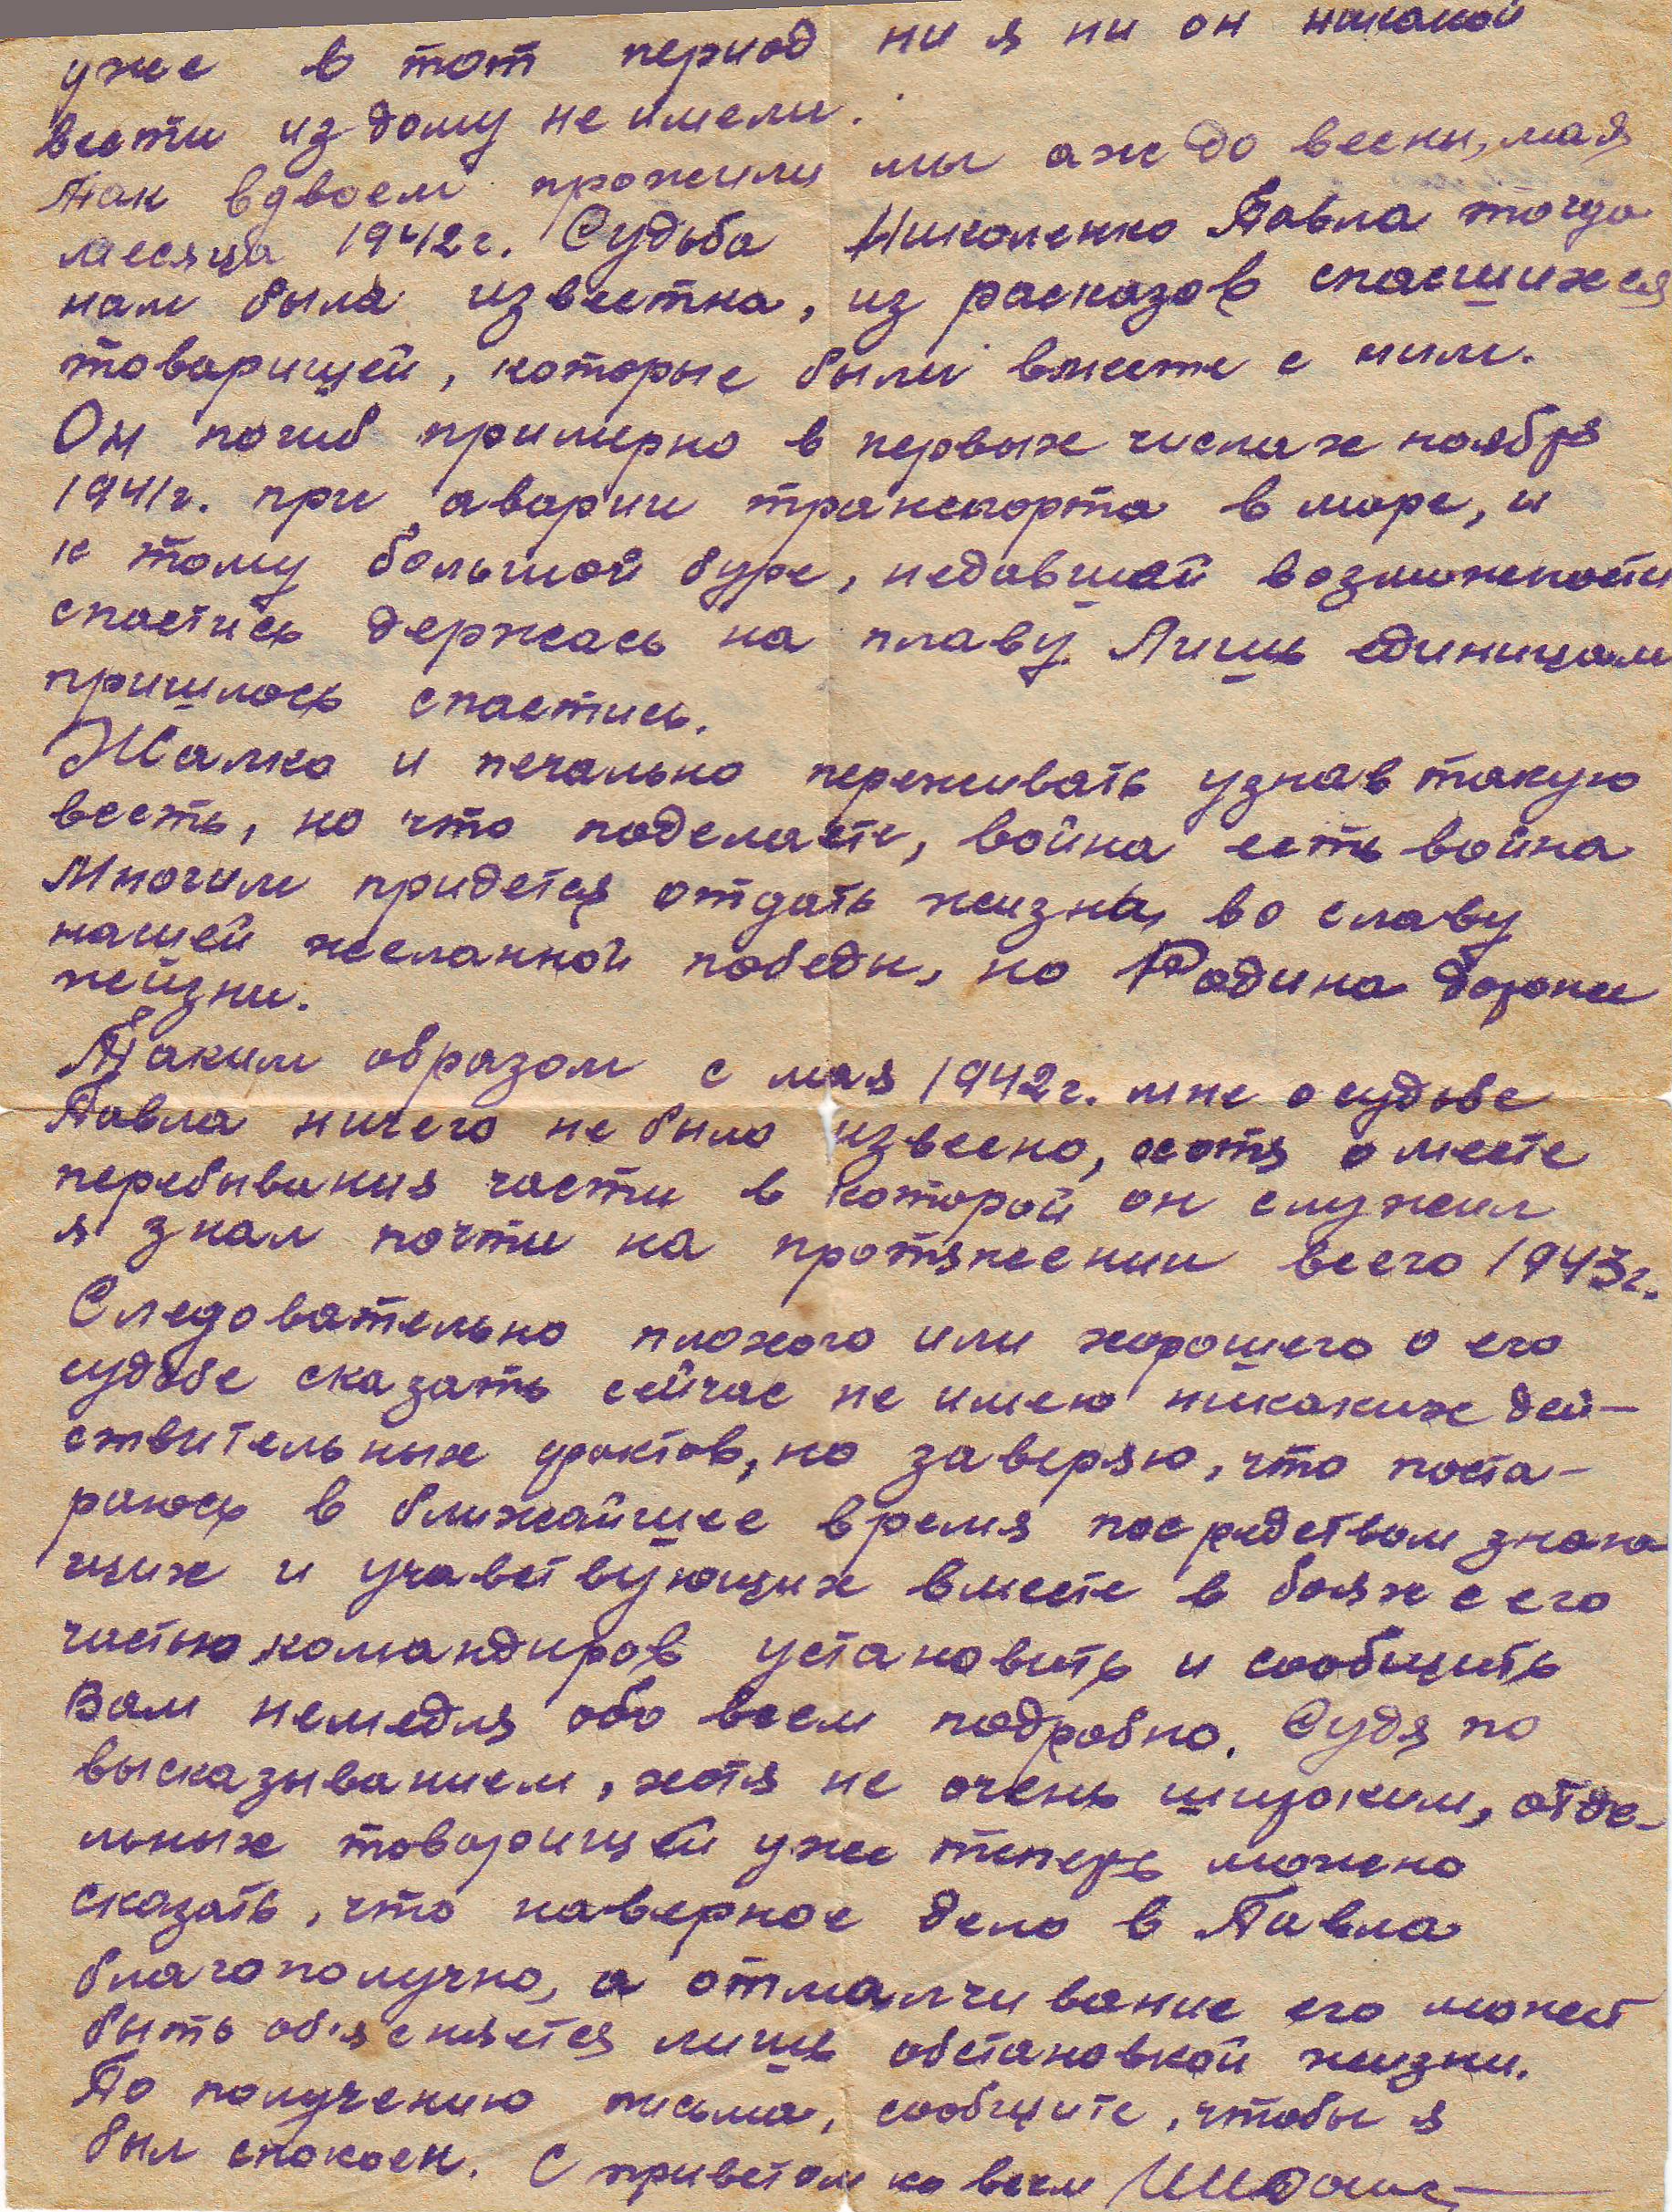 уже в тот период ни я ни он никакой
вести из дому не имели.
Так вдвоем прожили мы аж до весны, мая
месяца 1942г. Судьба Николенко Павла тогда
нам была известна, из расказов спасшихся
товарищей, которые были вместе с ним.
Он погиб примерно в первых числах ноября
1941г. при аварии транспорта в море, и
к тому большой буре, недавшей возможности
спастись держась на плаву. Лишь единицам
пришлось спастись.
Жалко и печально переживать узнав такую
весть, но что поделаете, война есть война
Многим придется отдать жизнь, во славу
нашей желанной победы, но Родина дороже
жизни.
Таким образом с мая 1942г. мне о судьбе
Павла ничего не было извесно, хотя о месте
перебывания части в которой он служил
я знал почти на протяжении всего 1943г.
Следовательно плохого или хорошего о его
судьбе сказать сейчас не имею никаких дей-
ствительных фактов, но заверяю, что поста-
раюсь в ближайшее время посредством знаю
щих и учавствующих вместе в боях с его
частью командиров установить и сообщить
Вам немедля обо всем подробно. Судя по
высказыванием, хотя не очень широким, отде-
льных товарищей уже теперь можно
сказать, что наверное дело в Павла
благополучно, а отмалчивание его может
быть об'ясняется лишь обстановкой жизни.
По получению письма, сообщите, чтобы я
был спокоен. С приветом ко всем